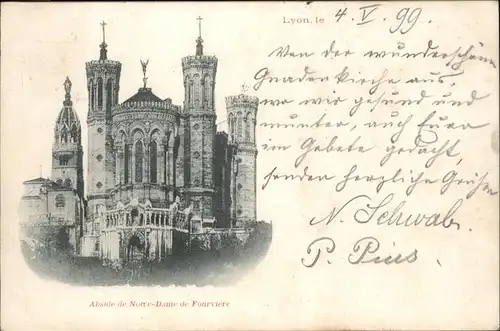 Lyon, le 4. V. 99.
Von der wunderschönen
Gnadenkirche aus,
wo wir gesund und
munter, auch Eurer
im Gebete gedacht,
senden herzliche Grüße
N. Schwab.
P. Pius.
Abside de Notre-Dame de Fourvière